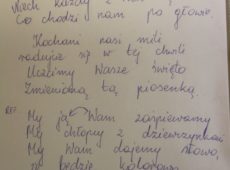 Niech każdy z nas
Co chodzi nam po głowie.
Kochani nasi mili
radując się w tej chwili
Uczcimy Wasze święto
Zmienioną tą piosenką.
REF. My ją Wam zaśpiewamy
My chłopcy z dziewczynkami
My Wam dajemy słowo,
będzie kolorowo